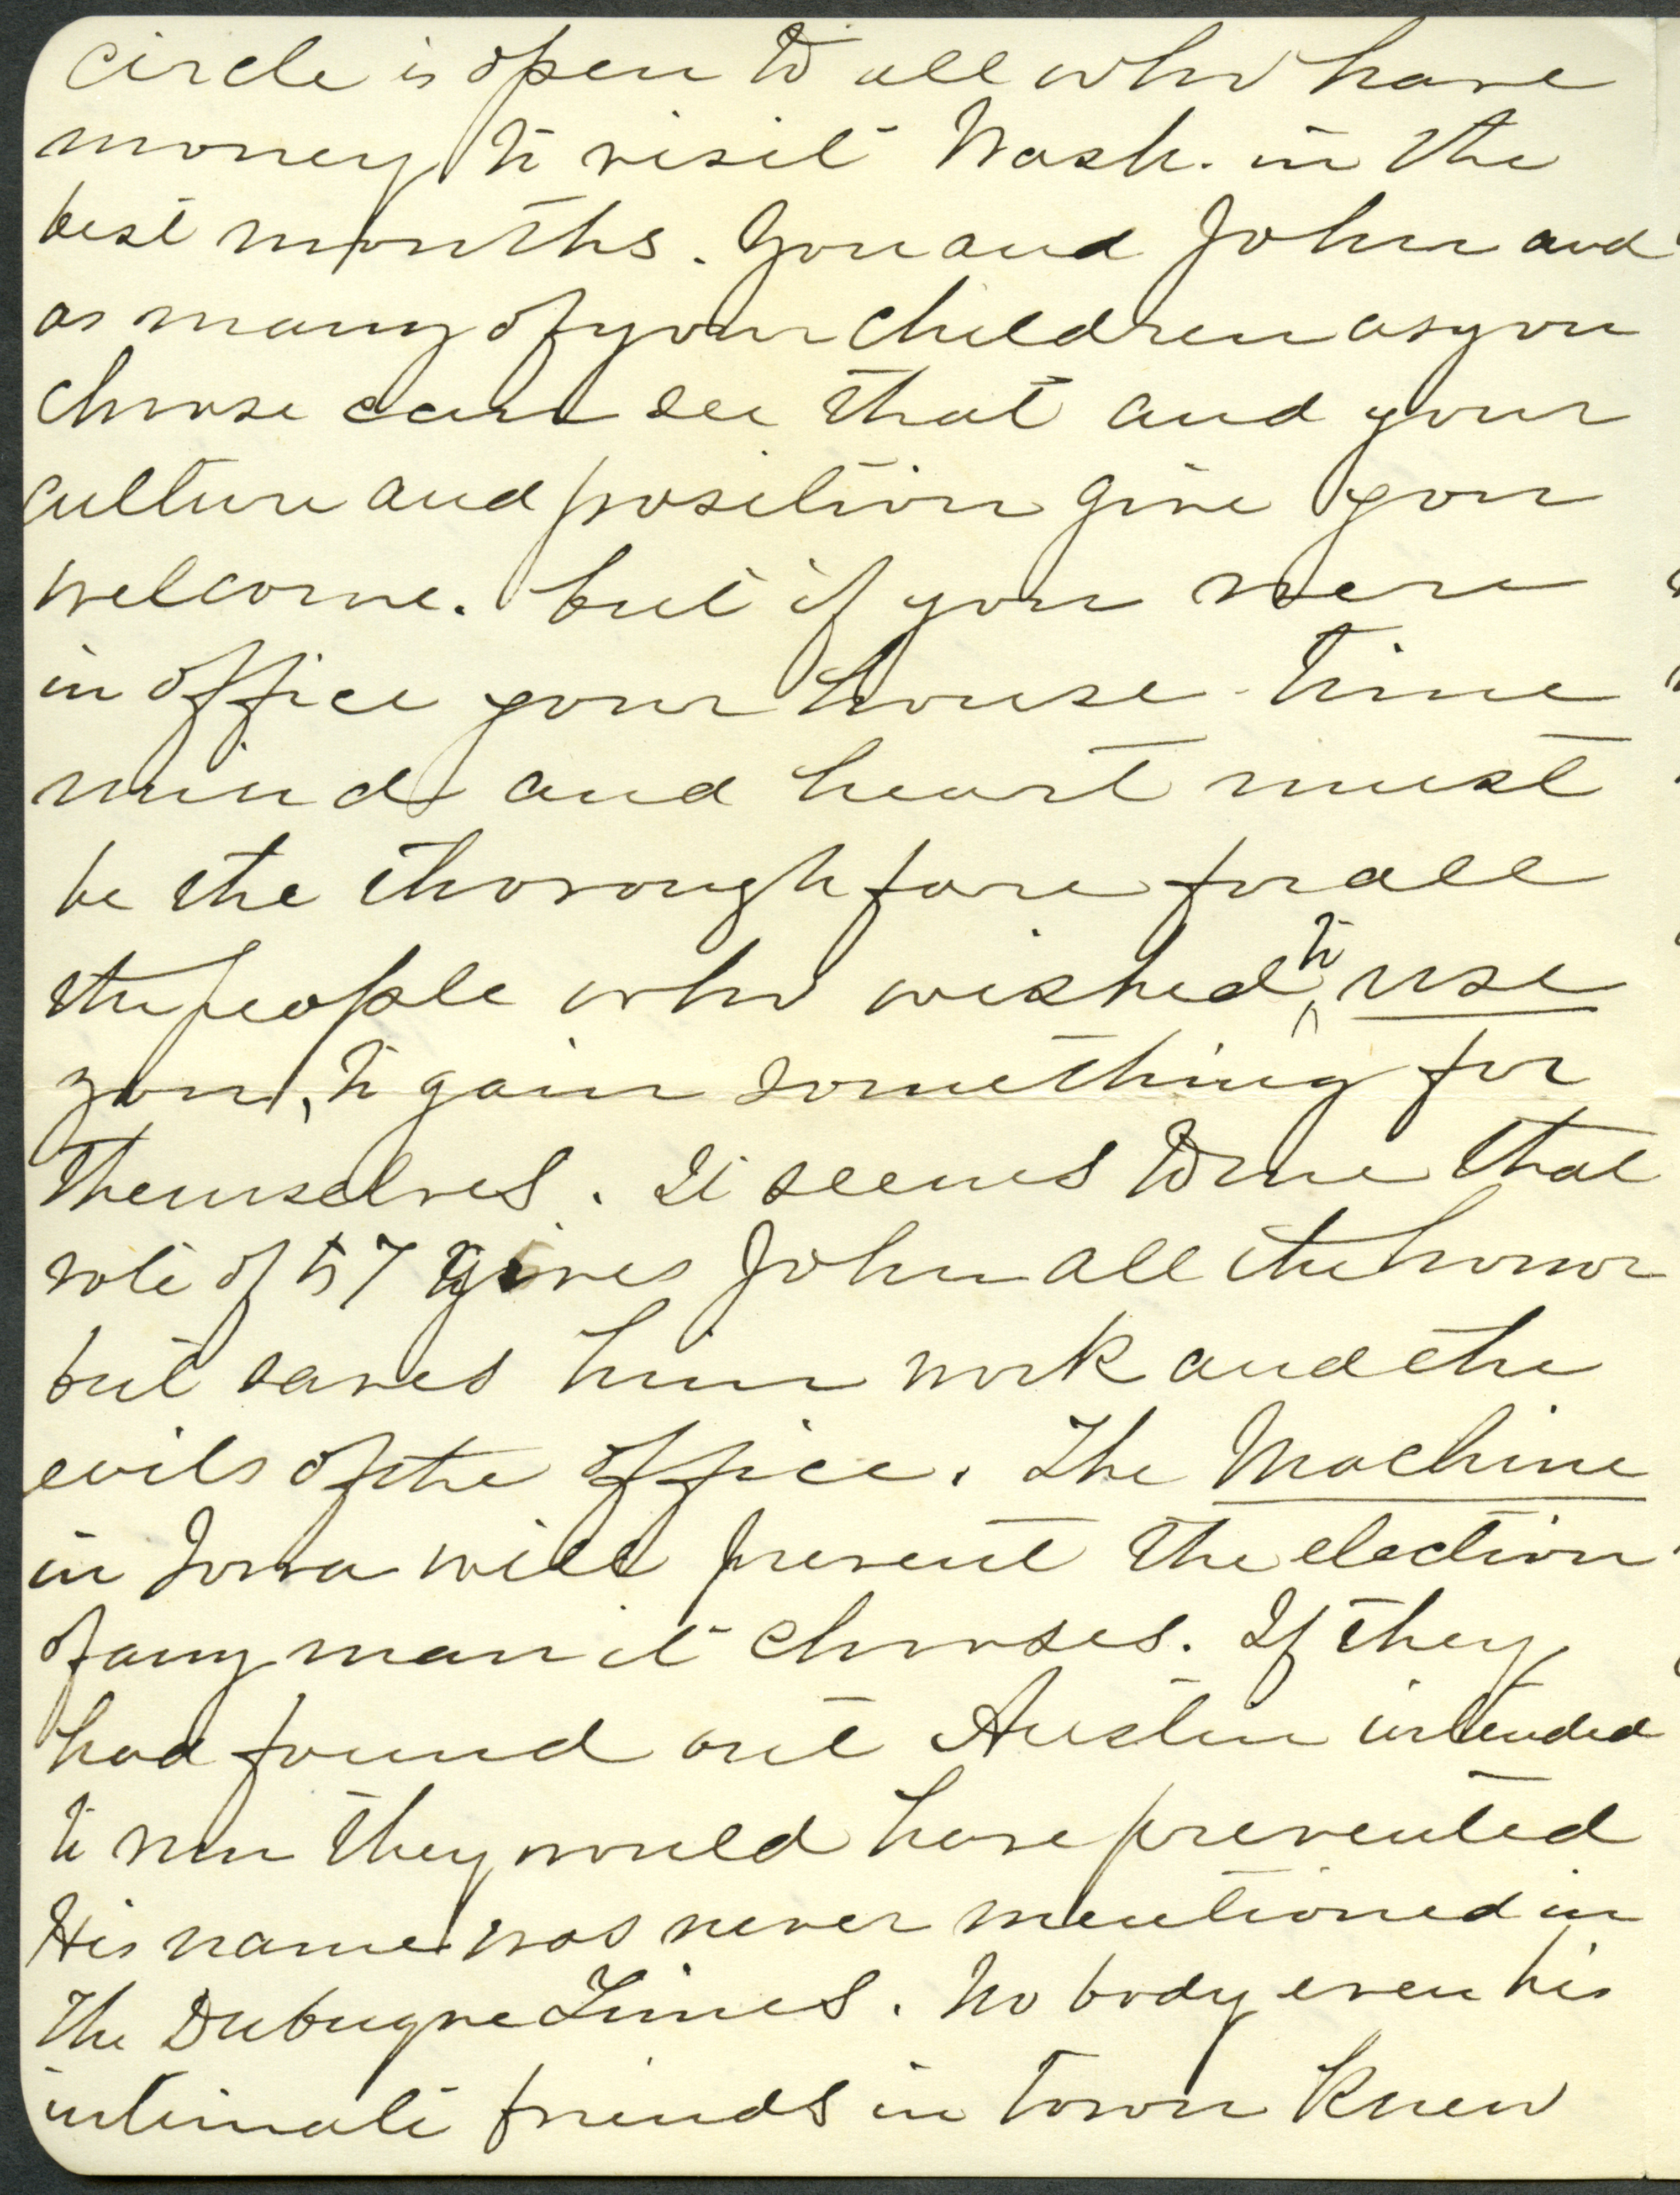 circle is open to all who have
money to visit Wash. in the
best months. You and John and
as many of your children as you
choose can see that and your
culture and position give you
welcome. but if you were
in office your house - time
mind and heart must
be the thoroughfare for all
the people who wished to use
you, to gain something for
themselves. It seems to me that
vote of 57 gives John all the honor
but saves him work and the
evils of the office. The Machine
in Iowa will prevent the election
of any man it chooses. If they
had found out Austin intended
to run they would have prevented
His name was never mentioned in
The Dubuque Times. No body even his
intimate friends in town knew